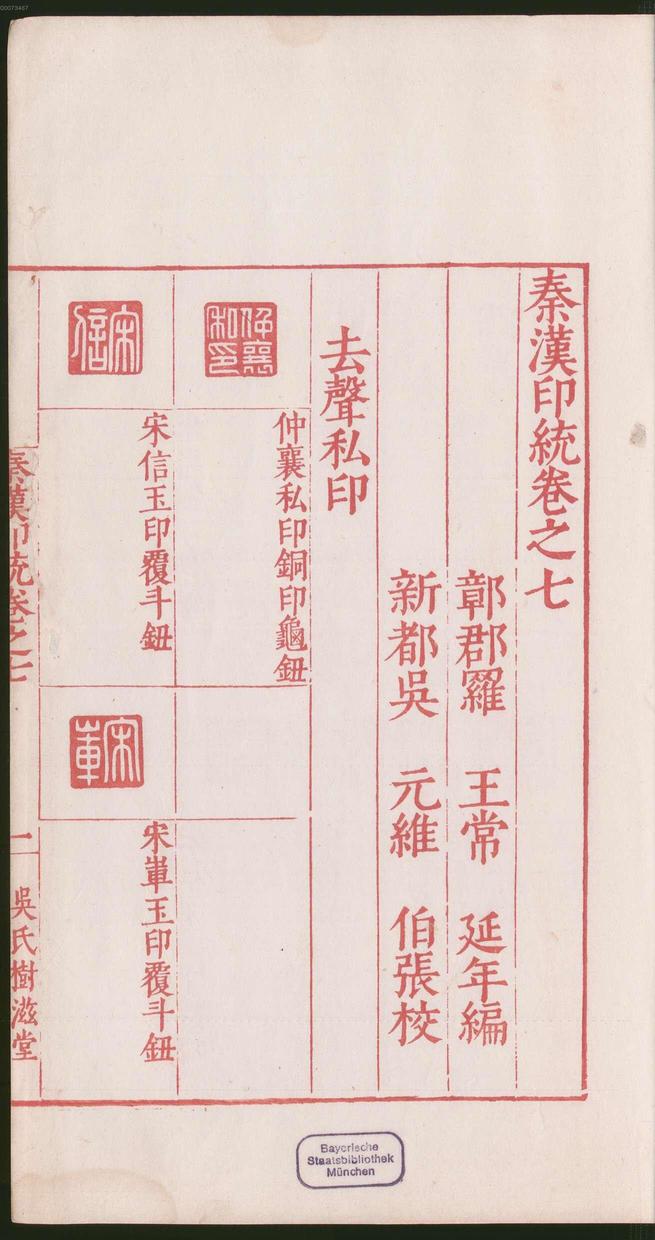 秦漢印統卷之七
鄣郡羅 王常 延年編
新都吳 元維 伯張校
去聲私印
仲襄私印
仲襄私印銅印龜鈕
宋信
宋信玉印覆斗鈕
宋
宋玉印覆斗鈕
秦漢印統卷之七
一
吳氏樹滋堂
Bayerische
Staatsbibliothek
München
00073467